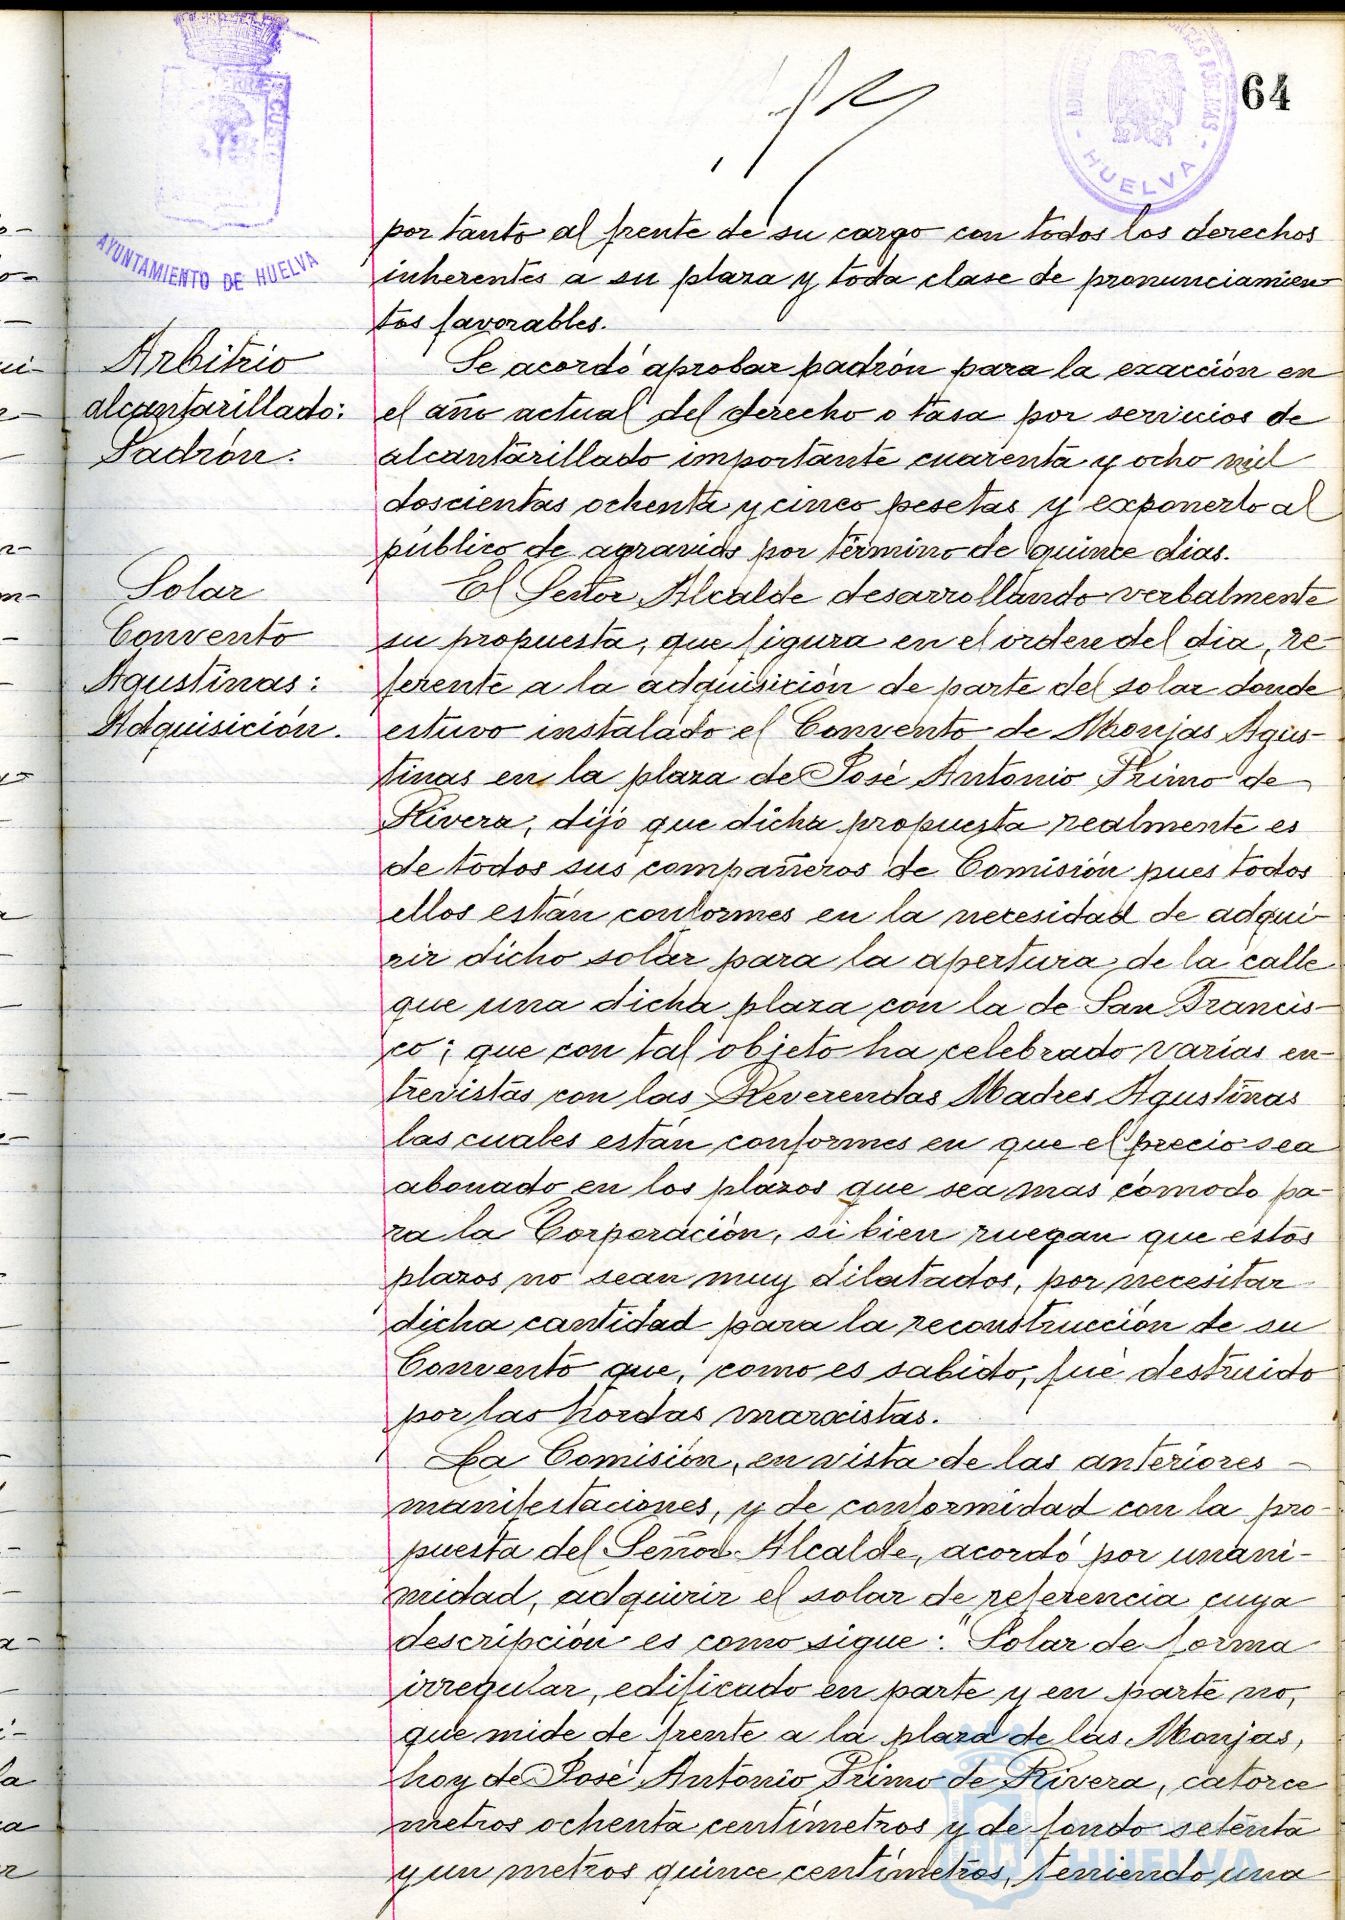 64
AYUNTAMIENTO DE HUELVA
HUELVA
por tanto al frente de su cargo con todos los derechos
inherentes a su plaza y toda clase de pronunciamien-
tos favorables.
Arbitrio
alcantarillado:
Padrón.
Se acordó aprobar padrón para la exacción en
el año actual del derecho o tasa por servicios de
alcantarillado importante cuarenta y ocho mil
doscientas ochenta y cinco pesetas y exponerlo al
público de agravios por término de quince dias.
Solar
Convento
Agustinas:
Adquisición.
El Señor Alcalde desarrollando verbalmente
su propuesta, que figura en el orden del dia, re-
ferente a la adquisición de parte del solar donde
estuvo instalado el Convento de Monjas Agus-
tinas en la plaza de José Antonio Primo de
Rivera, dijo que dicha propuesta realmente es
de todos sus compañeros de Comisión pues todos
ellos están conformes en la necesidad de adqui-
rir dicho solar para la apertura de la calle
que una dicha plaza con la de San Francis-
co; que con tal objeto ha celebrado varias en-
trevistas con las Reverendas Madres Agustinas
las cuales están conformes en que el precio sea
abonado en los plazos que sea mas cómodo pa-
ra la Corporación, si bien ruegan que estos
plazos no sean muy dilatados, por necesitar
dicha cantidad para la reconstrucción de su
Convento que, como es sabido, fué destruido
por las hordas marxistas.
La Comisión, en vista de las anteriores
manifestaciones, y de conformidad con la pro-
puesta del Señor Alcalde, acordó por unani-
midad, adquirir el solar de referencia cuya
descripción es como sigue: "Solar de forma
irregular, edificado en parte y en parte no,
que mide de frente a la plaza de las Monjas,
hoy de José Antonio Primo de Rivera, catorce
metros ochenta centímetros y de fondo setenta
y un metros quince centímetros, teniendo una
HUELVA